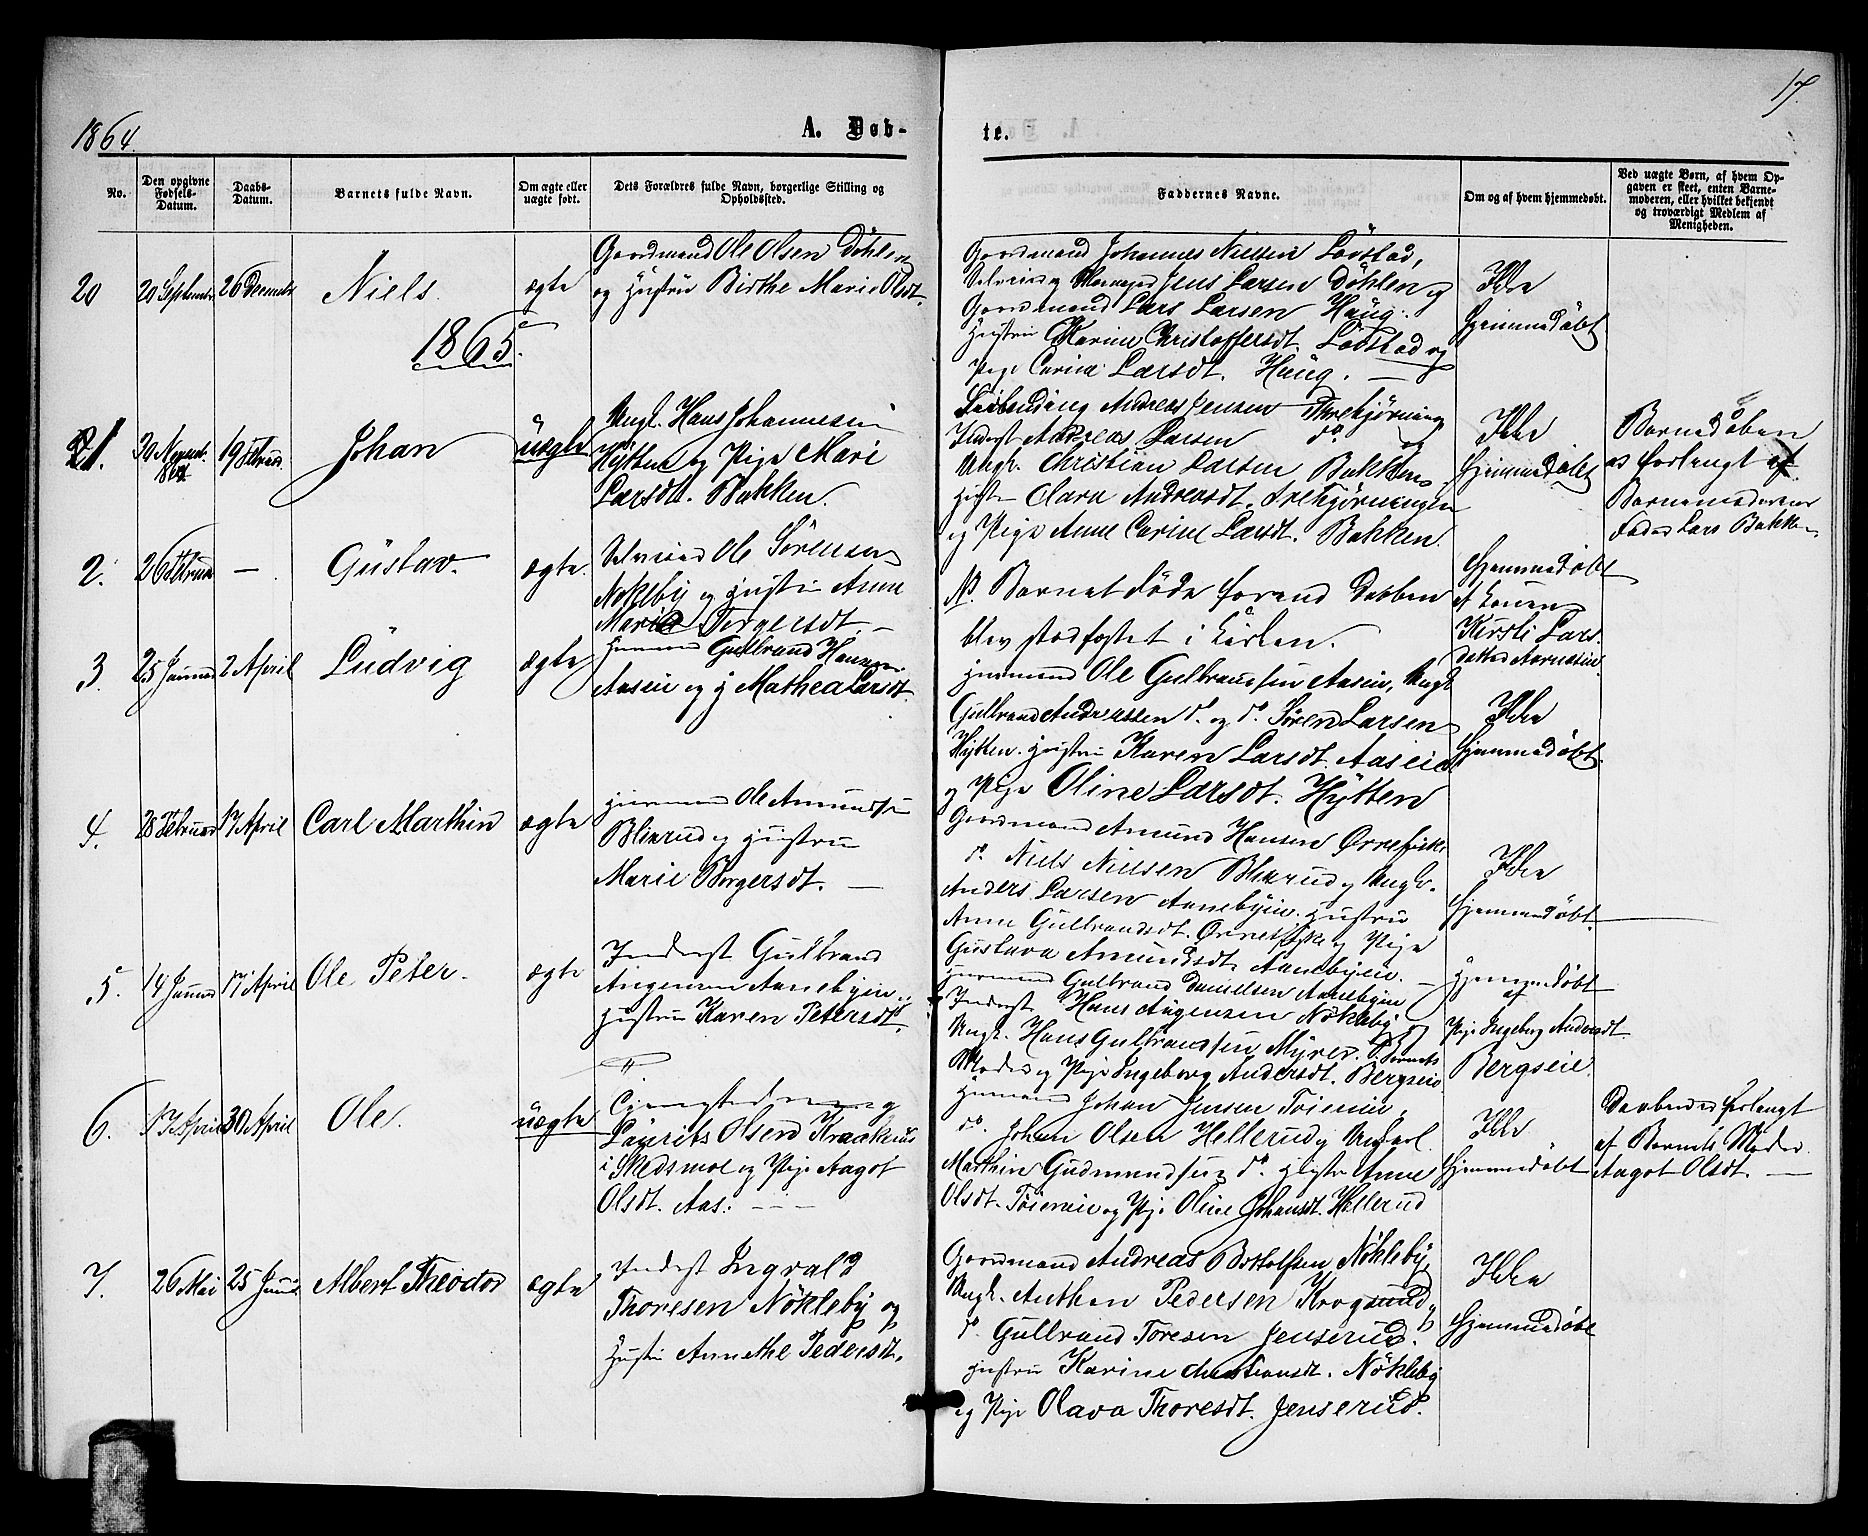 1864.
A. Døb-
te.
17.
No.
Den opgivne Fødsels-Datum.
Daabs-Datum.
Barnets fulde Navn.
Om ægte eller uægte født.
Dets Forældres fulde Navn, borgerlige Stilling og Opholdssted.
Faddernes Navne.
Om og af hvem hjemmedøbt.
Ved uægte Børn, af hvem Op-
gaven er skeet, enten Barne-
moderen, eller hvilket bekjendt
og troværdigt Medlem af
Menigheden.
20
20 Septembr
26 Decembr
Niels.
ægte
Gaardmand Ole Olsen Döhlen
og Hustru Birthe Marie Olsdt.
Gaardmand Johannes Nielsen Lövstad,
Selveier Jens Larsen Döhlen og
Gaardmand Lars Larsen Haug.
Hustru Karine Christoffersdt. Lövstad og
Pige Carine Larsdt. Haug. —
Ikke
hjemmedøbt
1865.
1.
30 Novembr.
1864
19 Februar
Johan
uægte
Ungk. Hans Johannesen
Hytten og Pige Mari
Larsdt. Bakken.
Andreas Jensen Trekjørningen
Inderst Andreas Larsen do. og
Ungk. Christian Larsen Bakken,
Hustru Clara Andreasdt. Trekjørningen
og Pige Anne Carine Larsdt. Bakken.
Ikke
hjemmedøbt
Barnedåben
er forlangt af
Barnemoderens
Fader Lars Bakken
2.
26 Februar
—
Gustav.
ægte.
Selveier Ole Sørensen
Nøkleby og Hustru Anne
Marie Torgersdt. —
NB. Barnet døde førend Daaben
blev stadfæstet i Kirken.
Hjemmedøbt
af Konen
Kirsti Lars-
datter
3.
25 Januar
2 April
Ludvig
ægte
Huusmand Gulbrand Hansen
Aaseie og H. Mathea Larsdt.
Huusmand Ole Gulbrandsen Aaseie, Ungk.
Gulbrand Andreassen do. og do. Søren Larsen
Hytten. Hustru Karen Larsdt. Aaseie
og Pige Oline Larsdt. Hytten
Ikke
hjemmedøbt.
4.
28 Februar
17 April
Carl Marthin
ægte
Huusmand Ole Amundsen
Blixrud og Hustru
Marie Borgersdt. —
Gaardmand Amund Hansen
do. Niels Nielsen Blixrud og Ungk.
Anders Larsen Aanebyeie. Hustru
Anne Gulbrandsdt. og Pige
Gustava Amundsdt. Aanebyeie. —
Ikke
hjemmedøbt.
5.
14 Januar
17 April
Ole Peter.
ægte
Inderst Gulbrand
Aanebyeie.
Hustru Karen Petersdt.
Huusmand Gulbrand Danielsen Aanebyeie
Inderst Hans Nökleby og
Ungk. Hans Gulbrandsen Myrer. Barnets
Moder og Pige Ingeborg Andersdt. Bergseie
Hjemmedøbt
af
Pige Ingeborg Andersdt.
Bergseie.
6.
17 April
30 April
Ole.
uægte
Laurits Olsen
i Skedsmoe og Pige Aagot
Olsdt. Aas. - - -
Huusmand Johan Jensen
do. Johan Olsen Hellerud og Ungkarl
Marthin Gudmundsen do. Hustru Anne
Olsdt. og Pige Oline Johansdt. Hellerud
Ikke
hjemmedøbt
Daaben er forlangt
af Barnets Moder
Aagot Olsdt. —
7.
26 Mai
25 Juni
Albert Theodor
ægte
Inderst Ingvald
Thoresen Nökleby og
Hustru Annethe Pedersdt.
Gaardmand Andreas Nökleby,
Ungk. Anthon Pedersen Krogsund,
do. Gulbrand Toresen Jenserud.
Hustru Karine Nökleby
og Pige Olava Thoresdt. Jenserud.
Ikke
hjemmedøbt